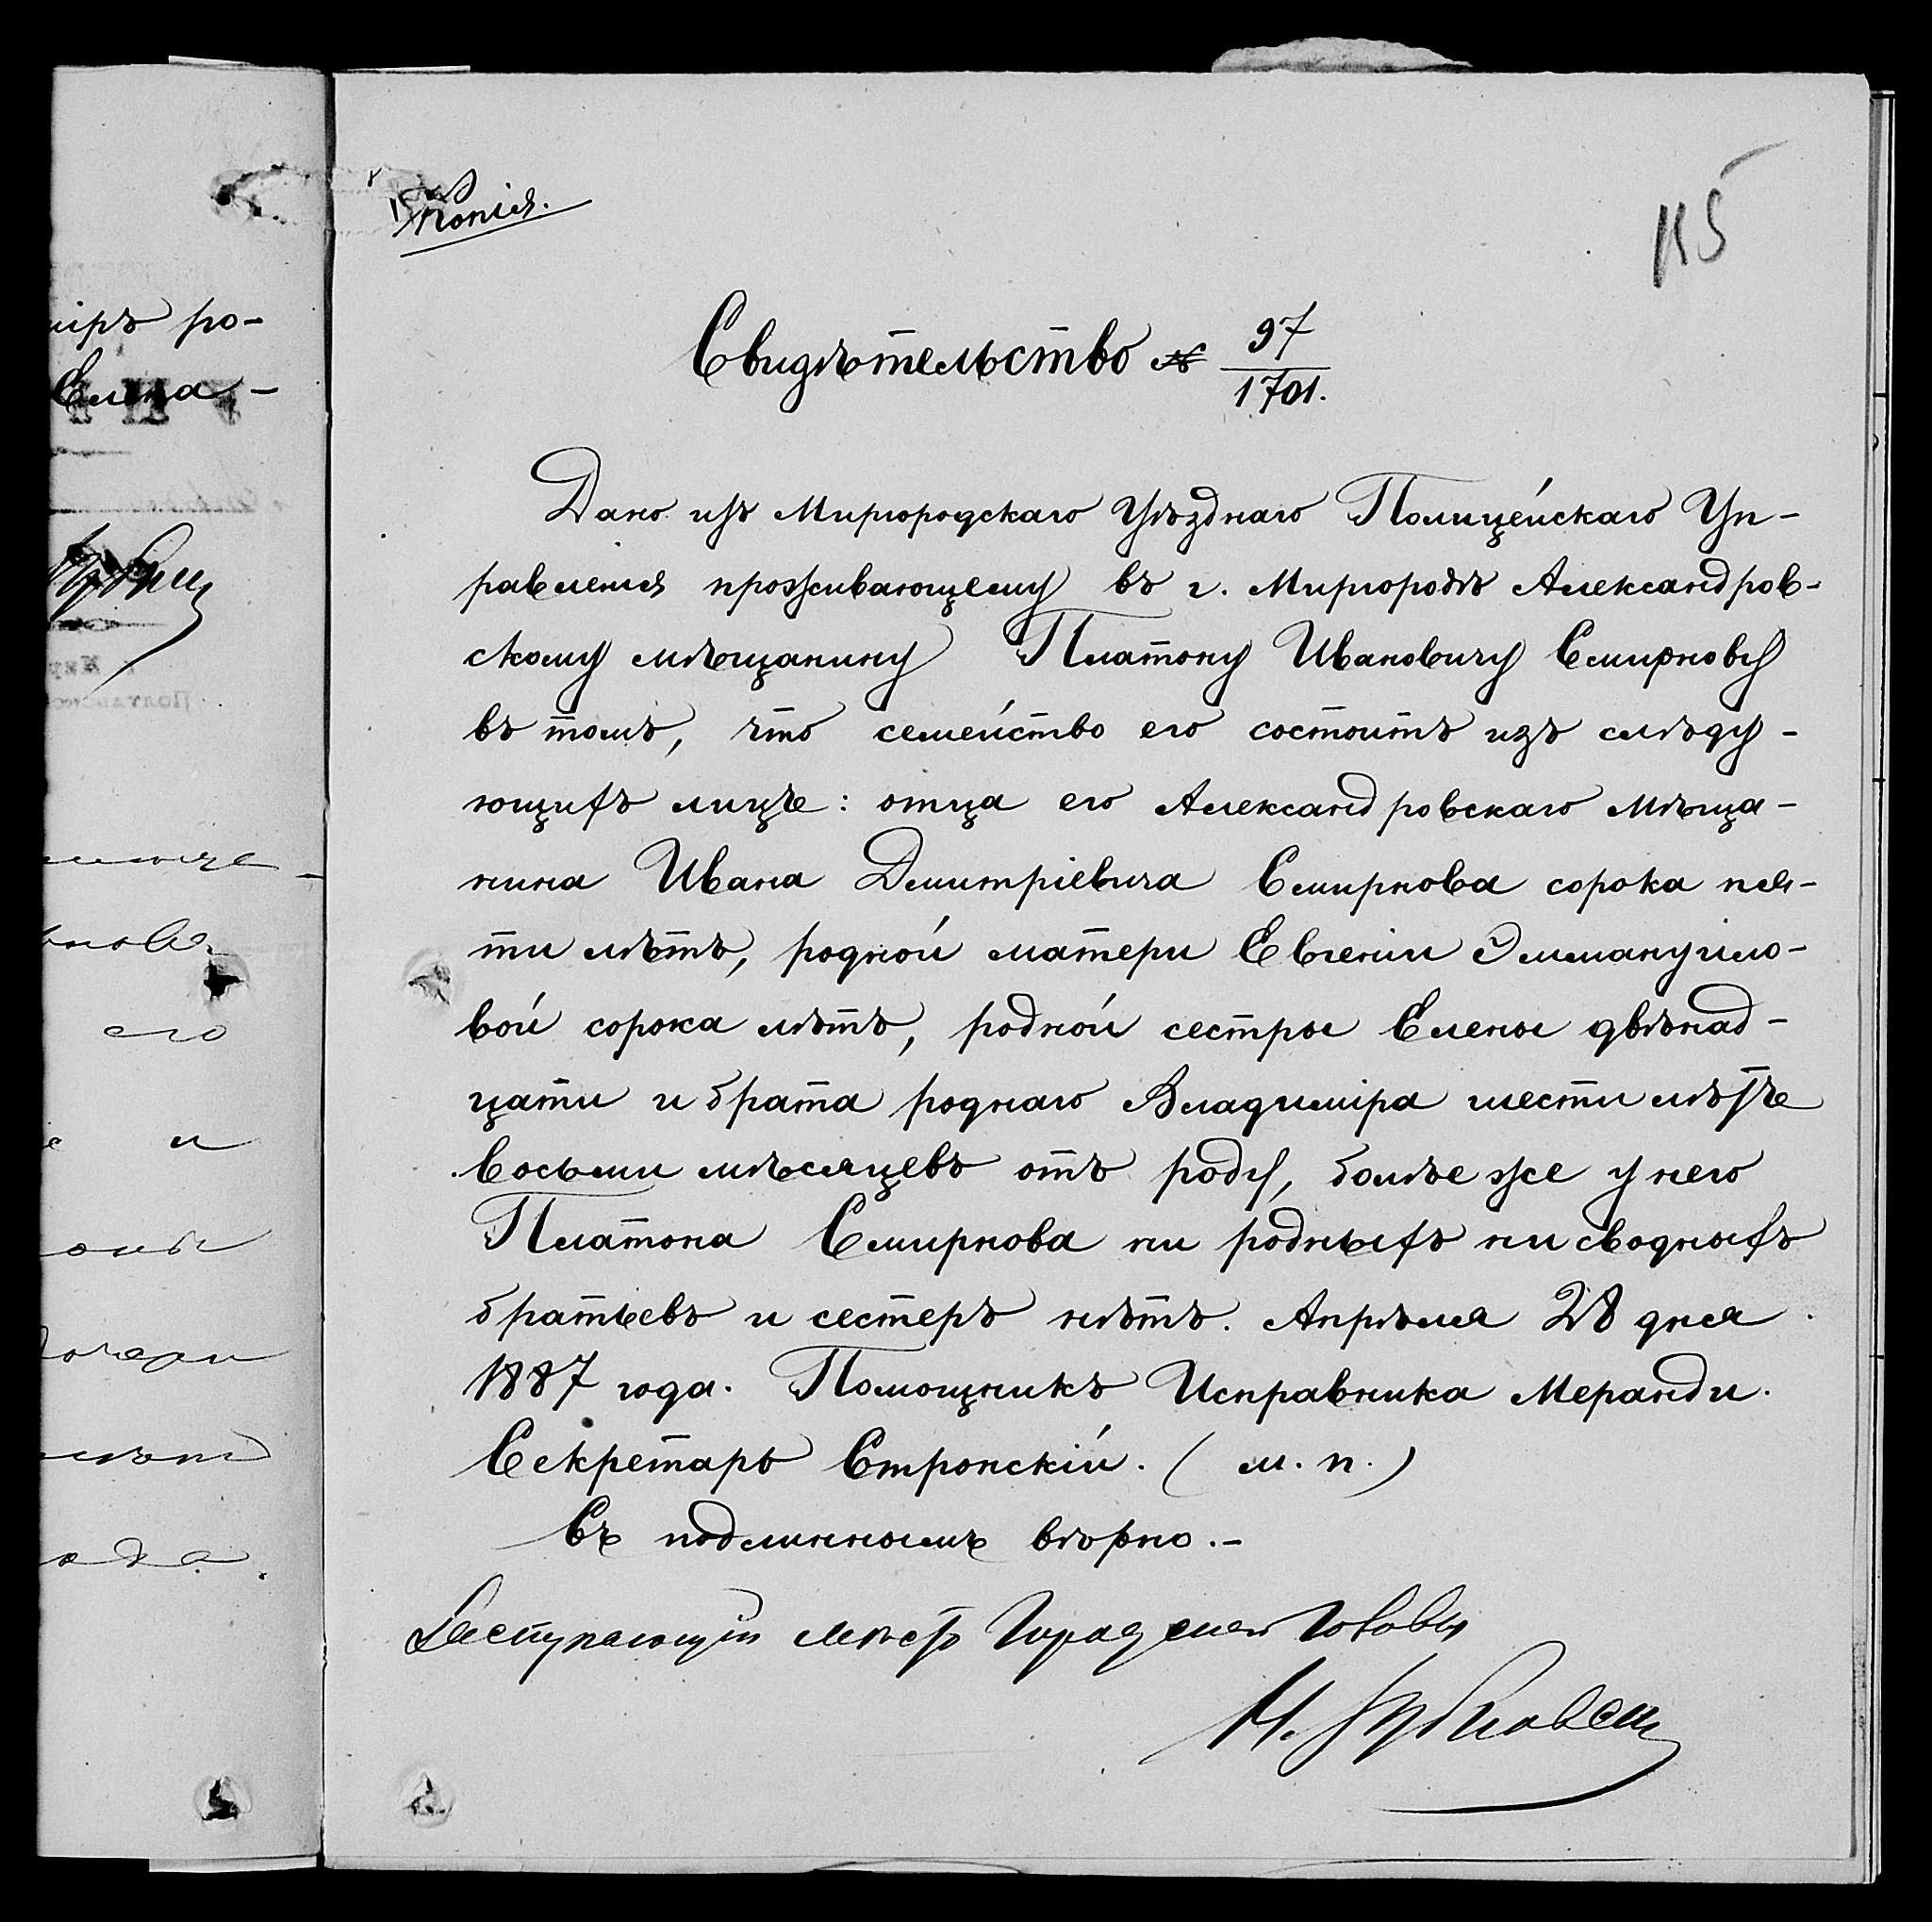 Копія.
115
Свидѣтельство № 97
1701.
Дано изъ Миргородскаго Уѣзднаго Полицейскаго Уп-
равленія проживающему въ г. Миргородѣ Александров-
скому мѣщанину Платону Ивановичу Смирнову
въ томъ, что семейство его состоитъ изъ слѣду-
ющихъ лицъ: отца его Александровскаго мѣща-
нина Ивана Дмитріевича Смирнова сорока пя-
ти лѣтъ, родной матери Евгеніи Эммануило-
вой сорока лѣтъ, родной сестры Елены двѣнад-
цати и брата роднаго Владиміра шести лѣтъ
восьми мѣсяцевъ отъ роду, болѣе же у него
Платона Смирнова ни родныхъ ни сводныхъ
братьевъ и сестеръ нѣтъ. Апрѣля 28 дня
1887 года. Помощникъ Исправника Меранди.
Секретарь Стронскій. (м. п.)
Съ подлиннымъ вѣрно.-
мѣсто Город Головы
іръ ро-
Елена-
его
и
лѣтъ
года.